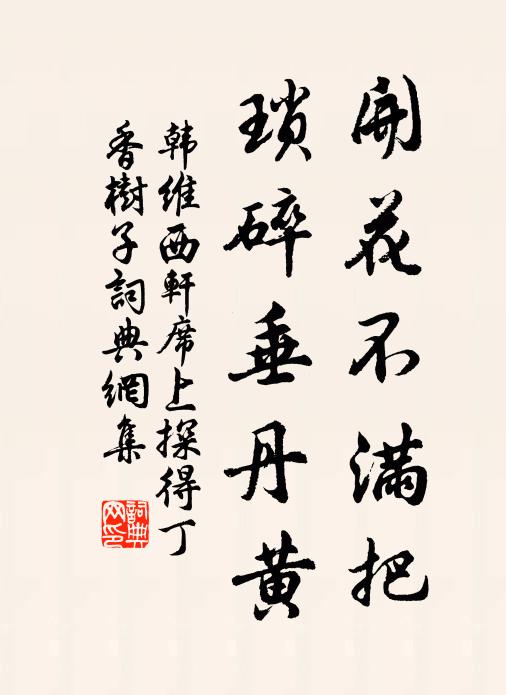 開花不滿把
瑣碎垂丹黃
韩維西軒席上探得丁
香樹子詞典網集
詞典网印